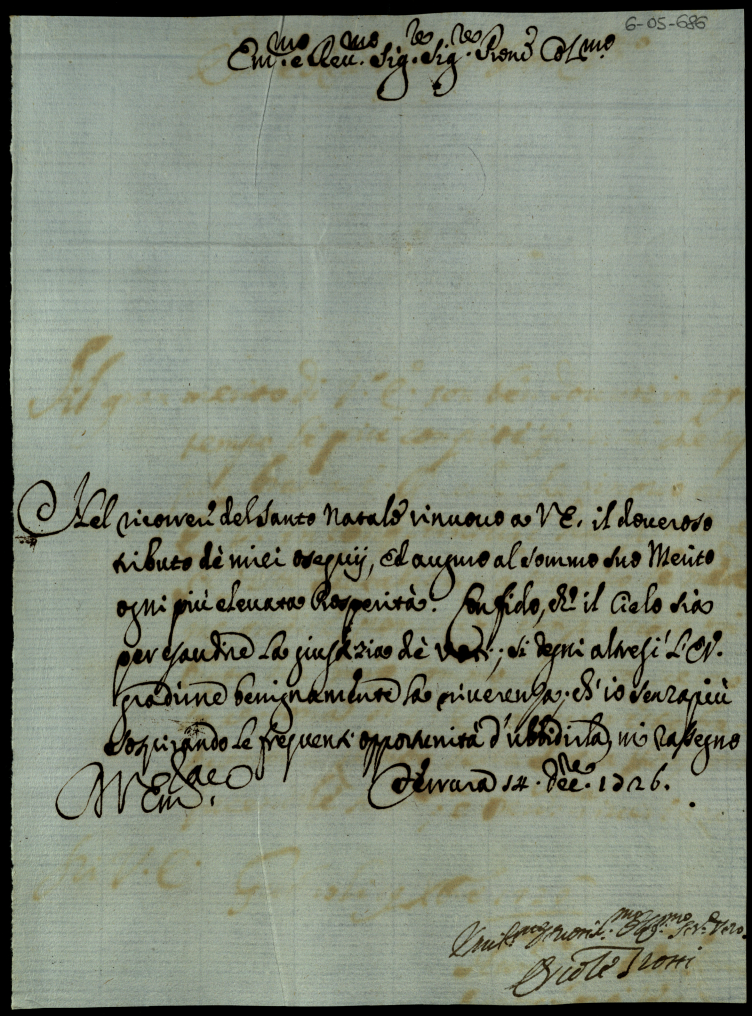 6-05-686
Em.mo e Reu.mo Sig.re Sig.re Pron̄ Col.mo
Nel ricorrer del Santo Natale rinuouo a V E. il doueroso
tributo dè miei osequij, ed auguro al sommo suo Merito
ogni più eleuata Prosperità. Confido, ch' il Cielo sia
per esaudire la giustizia dè voti; si degni altresì L'E V.
gradirne benignamente la riuerenza; ch' io senza più
sospirando le frequenti opportunità d'ubbidirla, mi rassegno
D V Em.
Ferrara 14. Dec.re 1726.